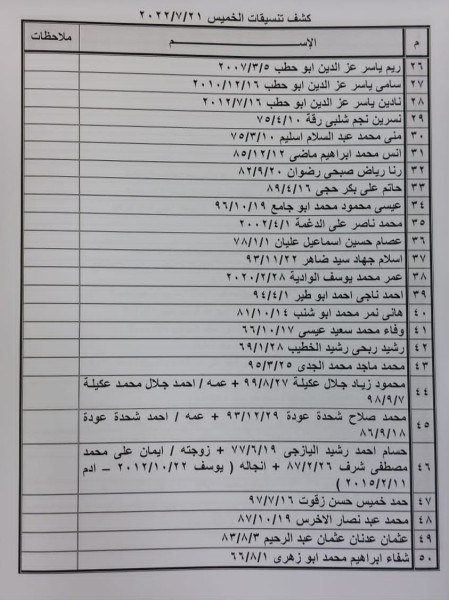 كشف تنسيقات الخميس ٢٠٢٢/٧/٢١
م الإســــــم ملاحظات
٢٦ ريم ياسر عز الدين ابو حطب ٢٠٠٧/٣/٥
٢٧ سامى ياسر عز الدين ابو حطب ٢٠١٠/١٢/١٦
٢٨ نادين ياسر عز الدين ابو حطب ٢٠١٢/٧/١٦
٢٩ نسرين نجم شلبى رقة ٧٥/٤/١٠
٣٠ منى محمد عبد السلام اسليم ٧٥/٣/١٠
٣١ انس محمد ابراهيم ماضى ٨٥/١٢/١٢
٣٢ رنا رياض صبحى رضوان ٨٢/٩/٢٠
٣٣ حاتم على بكر حجى ٨٩/٤/١٦
٣٤ عيسى محمود محمد ابو جامع ٩٦/١٠/١٩
٣٥ محمد ناصر على الدغمة ٢٠٠٢/٤/١
٣٦ عصام حسين اسماعيل عليان ٧٨/١/١
٣٧ اسلام جهاد سيد ضاهر ٩٣/١١/٢٢
٣٨ عمر محمد يوسف الوادية ٢٠٢٠/٢/٢٨
٣٩ احمد ناجى احمد ابو طير ٩٤/٤/١
٤٠ هانى نمر محمد ابو شنب ٨١/١٠/١٤
٤١ وفاء محمد سعيد عيسى ٦٦/١٠/١٧
٤٢ رشيد ربحى رشيد الخطيب ٦٩/١/٢٨
٤٣ محمد ماجد محمد الجدى ٩٥/٣/٢٥
٤٤ محمود زياد جلال عكيلة ٩٩/٨/٢٧ + عمه / احمد جلال محمد عكيلة
٩٨/٩/٧
٤٥ محمد صلاح شحدة عودة ٩٣/١٢/٢٩ + عمه / احمد شحدة عودة
٨٦/٩/١٨
٤٦ حسام احمد رشيد اليازجى ٧٧/٦/١٩ + زوجته / ايمان على محمد
مصطفى شرف ٨٧/٢/٢٦ + انجاله ( يوسف ٢٠١٢/١٠/٢٢ – ادم
٢٠١٥/٢/١١ )
٤٧ حمد خميس حسن زقوت ٩٧/٧/١٦
٤٨ محمد عبد نصار الاخرس ٨٧/١٠/١٩
٤٩ عثمان عدنان عثمان عبد الرحيم ٨٣/٨/٣
٥٠ شفاء ابراهيم محمد ابو زهرى ٦٦/٨/١